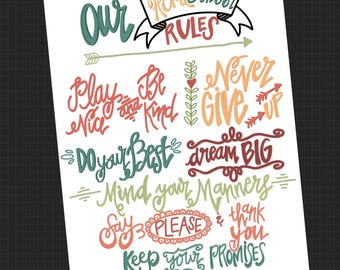 OUR
HOMESCHOOL
RULES
Play Nice and Be Kind
Never Give up
Do your Best
dream BIG
Mind your Manners
Say PLEASE & thank you
Keep your PROMISES